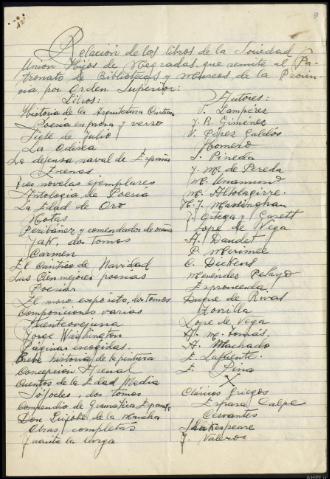 Relación de los libros de la Sociedad
Unión Hijos de Negradas, que remite al Pa-
tronato de Bibliotecas y museos de la Provin-
cia, por Orden Superior:
Libros: Autores:
Historia de la Arquitectura V. Lamperez
Poesia en prosa y verso J. R. Gimenez
Siete de Julio B. Perez Galdós
La Odisea Homero
La defensa naval de España S. Pineda
Escenas J. M. de Pereda
Tres novelas ejemplares M. Unamuno
Antologia de Poesia M. Altolaguirre
La Edad de Oro
Notas J. Ortega y Gasett
Peribañez y comendador de Lope de Vega
Jak, dos tomos A. Daudet
Carmen P. Merimé
El Cantico de Navidad C. Dickens
Las Cien mejores poesias Menéndez Pelayo
Poesias Espronceda
El moro expósito, dos tomos Duque de Rivas
Composiciones varias Zorrilla
Fuenteovejuna Lope de Vega
Jorge Washington
Páginas escogidas. A. Machado
historia de la pintura E. Lafuente.
Concepción Arenal
Cuentos de la Edad Media X
Sofocles, dos tomos Clásicos griegos
Compendio de Gramática Española Espasa Calpe
Don Quijote de la Mancha Cervantes
Obras, completas Shakespeare
Juanita la larga J. Valeros